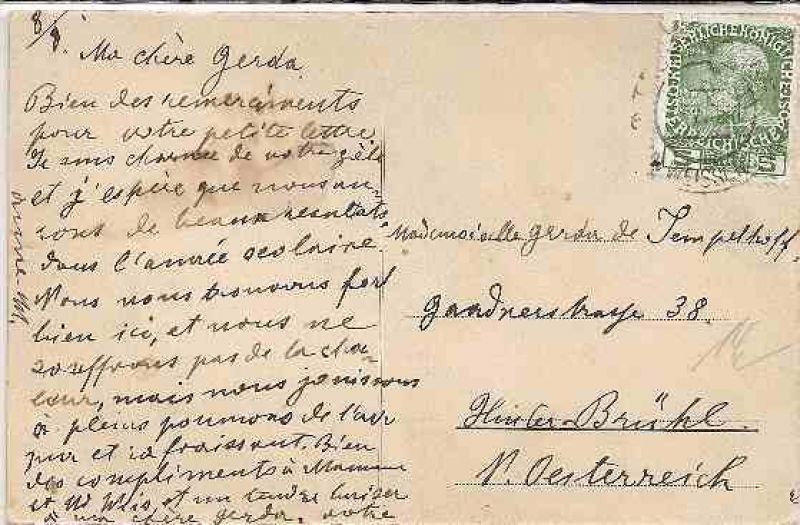 8/8.
Ma chère Gerda.
Bien des remercîments
pour votre petite lettre.
Je suis charmée de votre zèle
et j'espère que nous au-
rons de beaux résultats
dans l'année scolaire.
Nous nous trouvons fort
bien ici, et nous ne
souffrons pas de la cha-
leur, mais nous jouissons
à pleins poumons de l'air
pur et rafraîssant. Bien
des compliments à Maman
et un tendre baiser
à ma chère Gerda. votre
Mademoiselle Gerda de Tempelhoff.
Gaadnerstrasse 38.
Hinter-Brühl.
N. Oesterreich